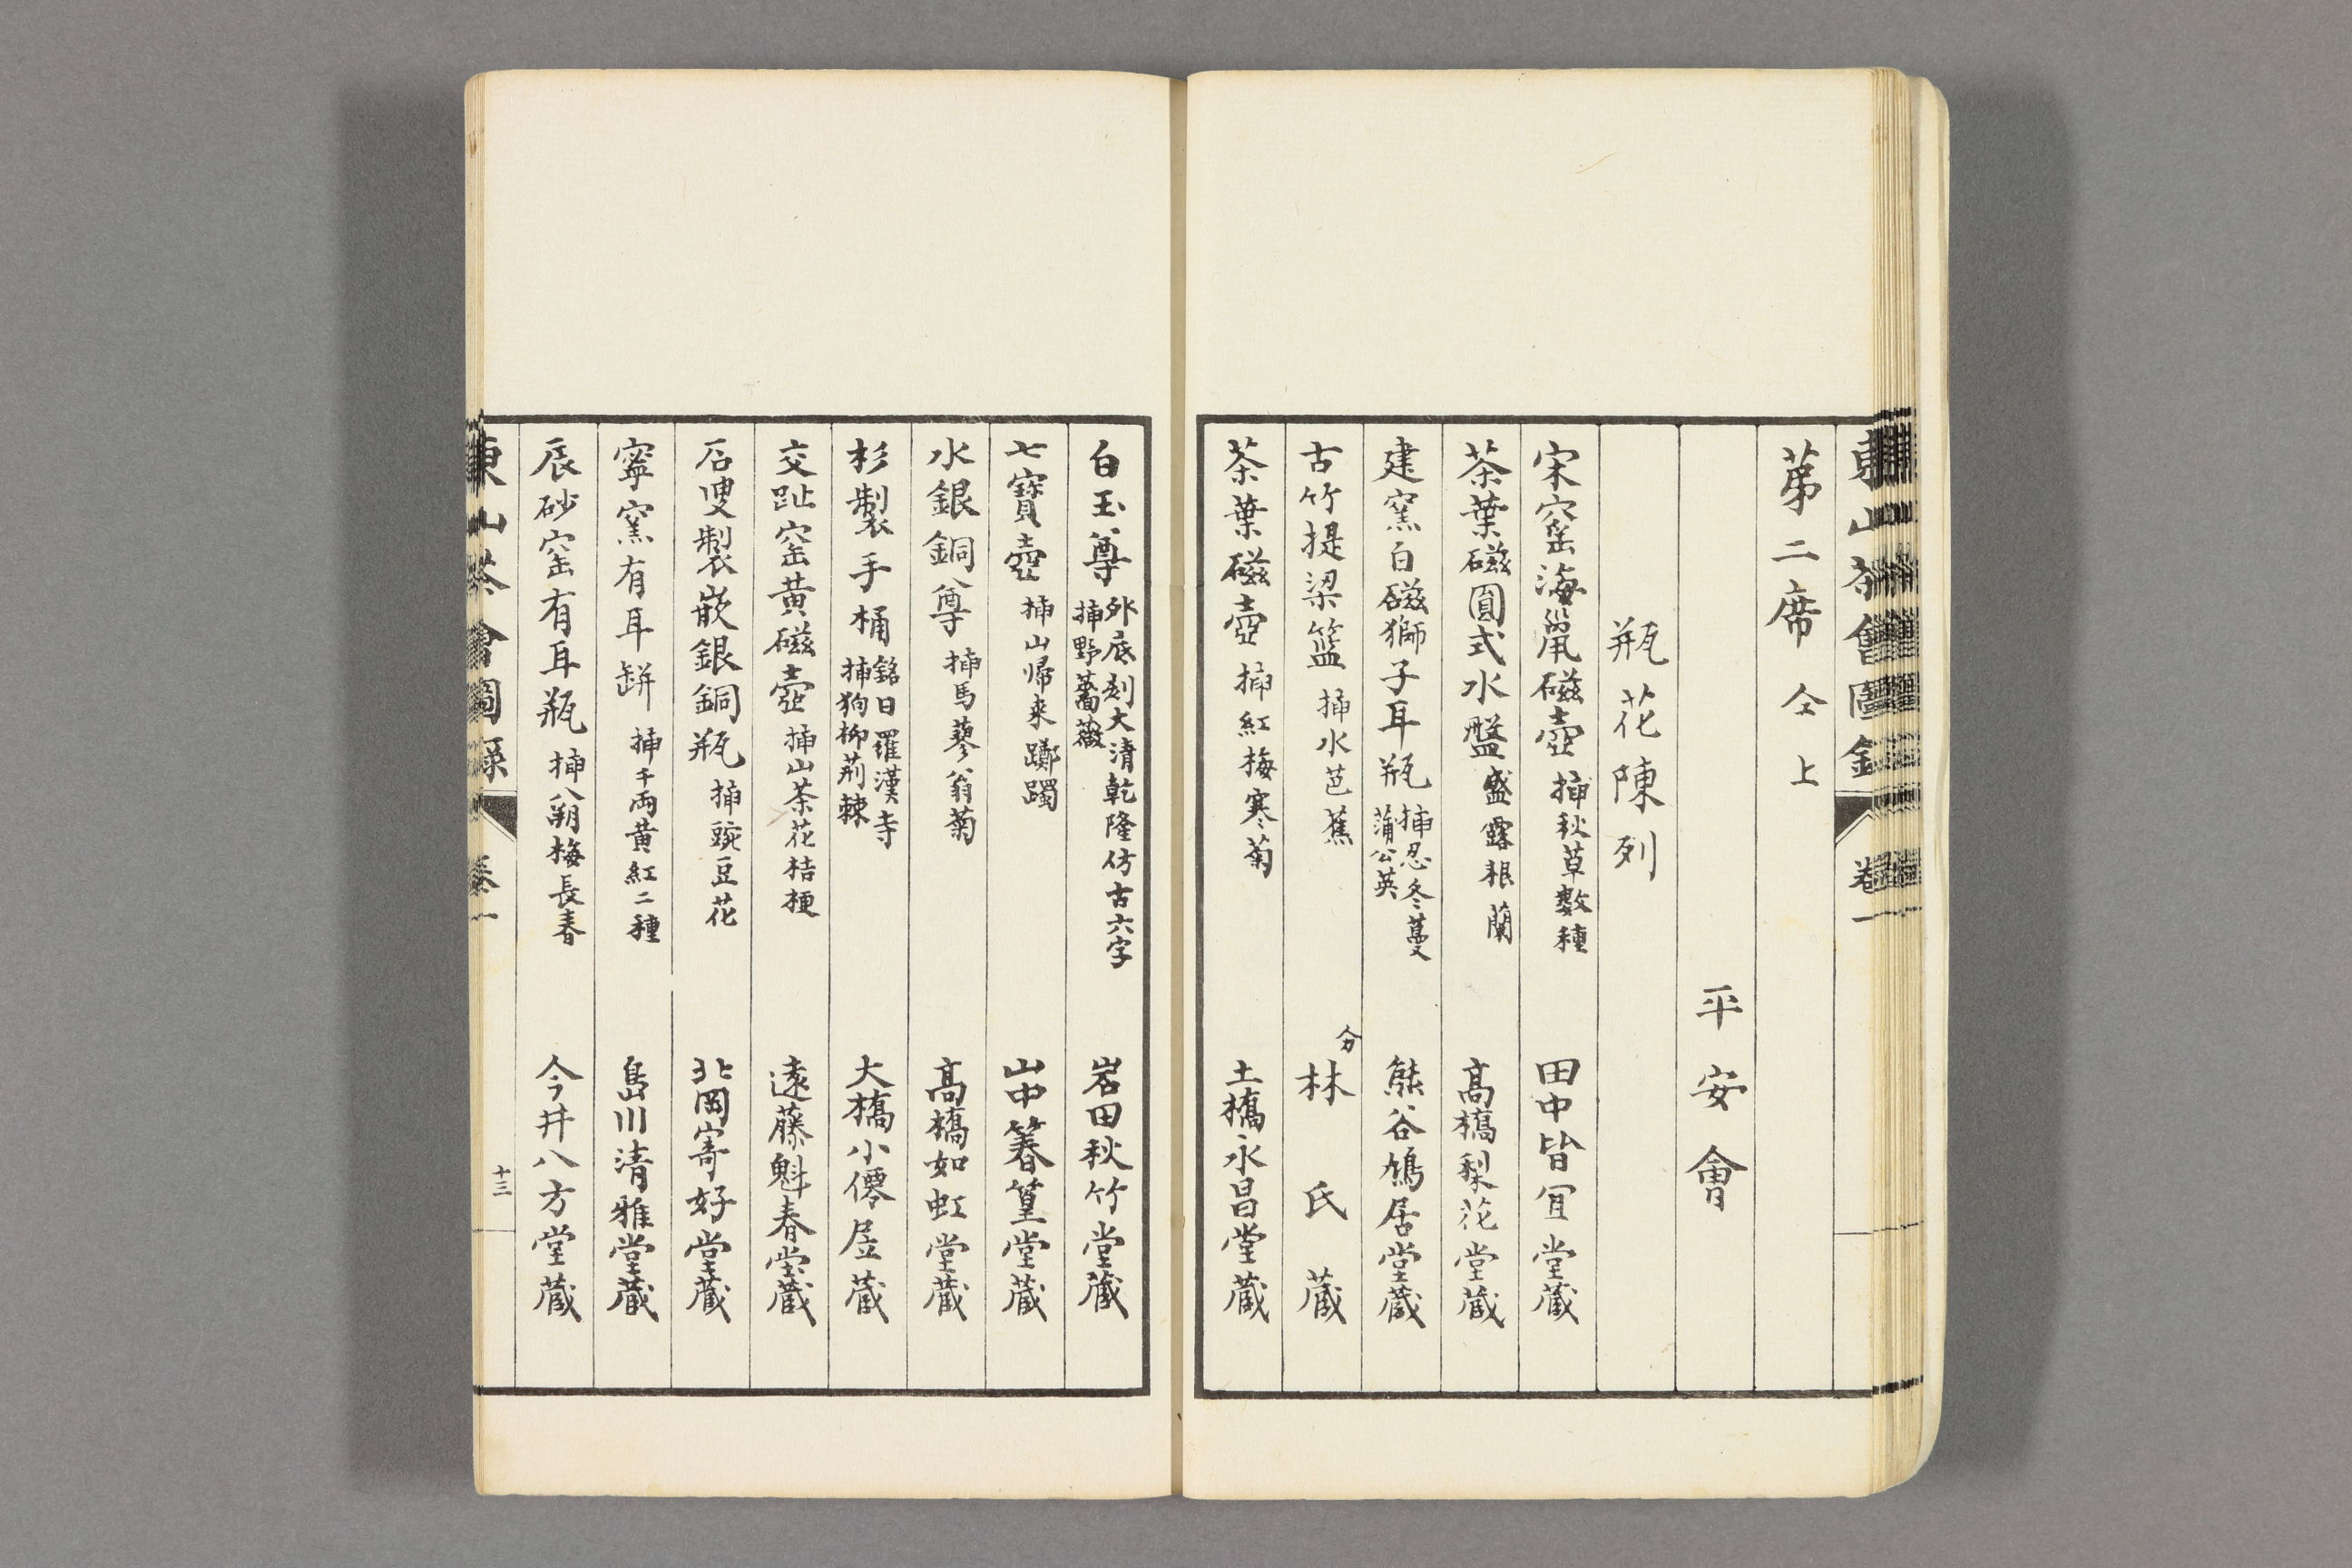 東山茶會圖録 卷一
苐二席 仝上
平安會
瓶花陳列
宋窑海鼠磁壺 挿秋草數種 田中皆宜堂蔵
茶葉磁圓式水盤 盛露根蘭 髙橋梨花堂蔵
建窯白磁獅子耳瓶 挿忍冬蔓 蒲公英 熊谷鳩居堂蔵
古竹提梁籃 挿水芭蕉 林氏蔵
茶葉磁壺 挿紅梅寒菊 土橋永昌堂蔵
白玉尊 外底刻大清乾隆仿古六字 挿野薔薇 岩田秋竹堂蔵
七寶壺 挿山帰来躑躅 山中篝篁堂蔵
水銀銅尊 挿馬蓼翁菊 髙橋如虹堂蔵
杉製手桶 銘曰羅漢寺 挿狗柳荊棘 大橋小僊屋蔵
交趾窑黄磁壺 挿山茶花桔梗 遠藤魁春堂蔵
石叟製嵌銀銅瓶 挿豌豆花 北岡寄好堂蔵
寧窯有耳缾 挿千両黄紅二種 島川清雅堂蔵
辰砂窑有耳瓶 挿八朔梅長春 今井八方堂蔵
東山茶會圖録 卷一
十三